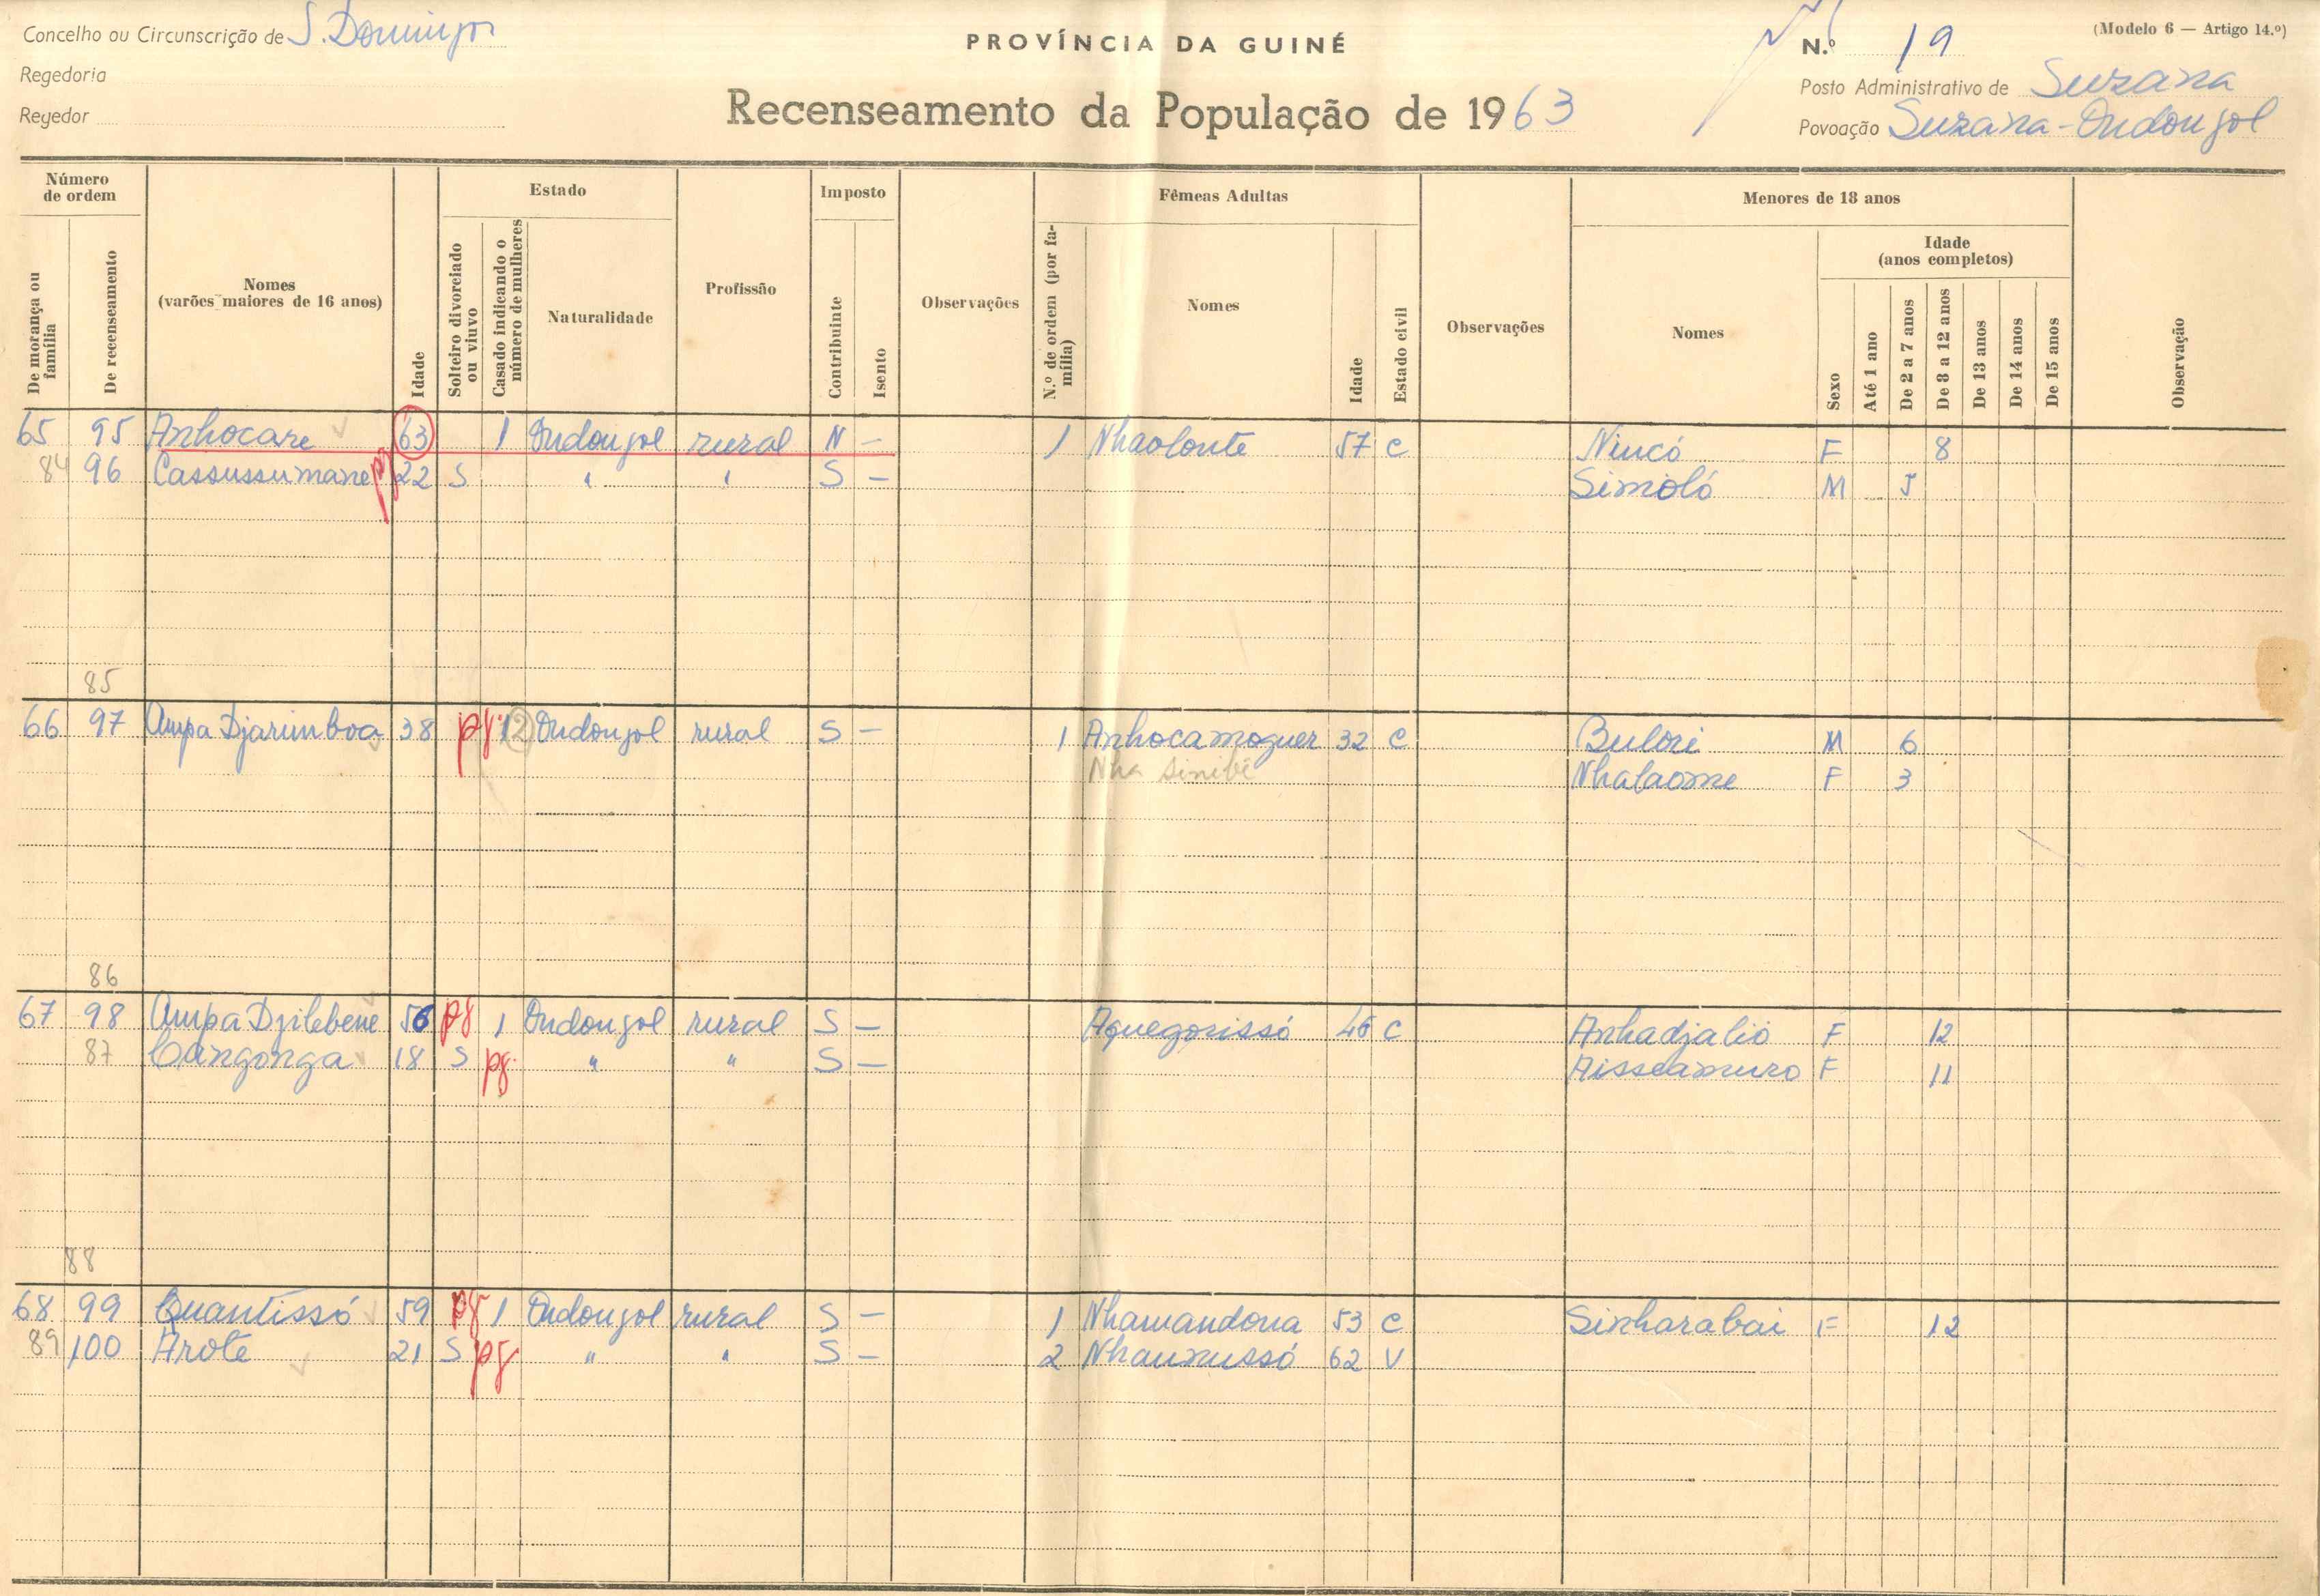 Concelho ou Circunscrição de S. Domingos
Regedoria
Regedor
PROVÍNCIA DA GUINÉ
Recenseamento da População de 1963
(Modelo 6 — Artigo 14.º)
N.º 19
Posto Administrativo de Suzana
Povoação Suzana-Ondongol
Número de ordem
De morança ou família
De recenseamento
Nomes (varões maiores de 16 anos)
Idade
Estado
Solteiro divorciado ou viuvo
Casado indicando o número de mulheres
Naturalidade
Profissão
Imposto
Contribuinte
Isento
Observações
Fêmeas Adultas
N.º de ordem (por família)
Nomes
Idade
Estado civil
Observações
Menores de 18 anos
Nomes
Sexo
Idade (anos completos)
Até 1 ano
De 2 a 7 anos
De 8 a 12 anos
De 13 anos
De 14 anos
De 15 anos
Observação
65 95 Anhocare 63 1 Ondongol rural N — 1 Nhaolonte 57 C Niucó F 8
84 96 Cassussumane pg 22 S " " S — Simoló M 5
85
66 97 Ampa Djarimboa 38 pg 1 2 Ondongol rural S — 1 Anhocamoguer 32 C Bulori M 6
Nha Sinibé Nhalaome F 3
86
67 98 Ampa Djilebene 56 pg 1 Ondongol rural S — Aquegorissó 46 C Anhadjalió F 12
87 Cangonga 18 S pg " " S — Aisseamuro F 11
88
68 99 Quantissó 59 pg 1 Ondongol rural S — 1 Nhamandona 53 C Sinharabai F 12
89 100 Arote 21 S pg " " S — 2 Nhaumussó 62 V